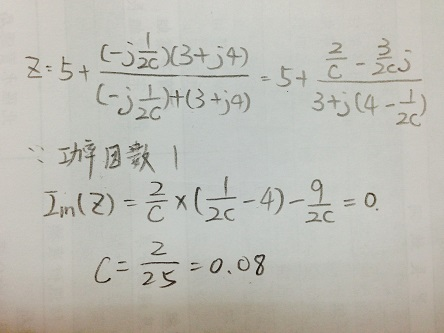 Z = 5 + \frac{(-j\frac{1}{2C})(3+j4)}{(-j\frac{1}{2C})+(3+j4)} = 5 + \frac{\frac{2}{C} - \frac{3}{2C}j}{3+j(4-\frac{1}{2C})}
∵ 功率因数 1
Im(Z) = \frac{2}{C} × (\frac{1}{2C} - 4) - \frac{9}{2C} = 0.
C = \frac{2}{25} = 0.08